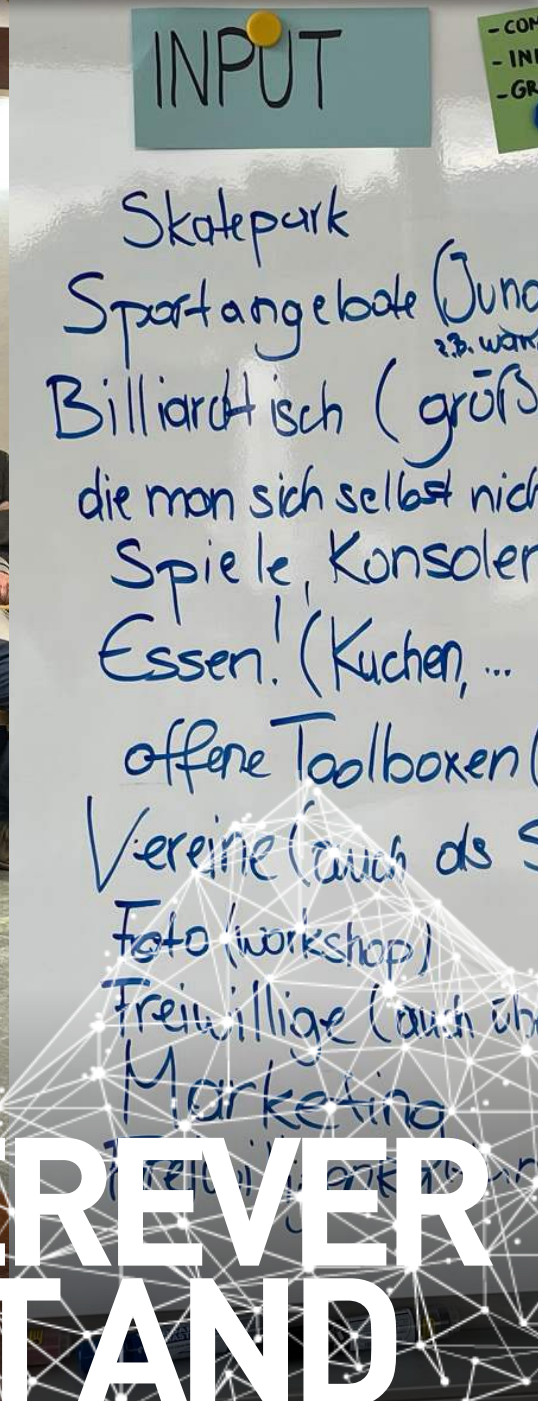 INPUT
- COM
- IN
- GR
Skatepark
Sportangebote (Jung
z.B. wan
Billiardtisch (größ
die man sich selbst nich
Spiele, Konsolen
Essen! (Kuchen, ...
offene Toolboxen (
Vereine (auch als S
Foto (workshop)
Freiwillige (auch üb
Marketing
EREVER
T AND